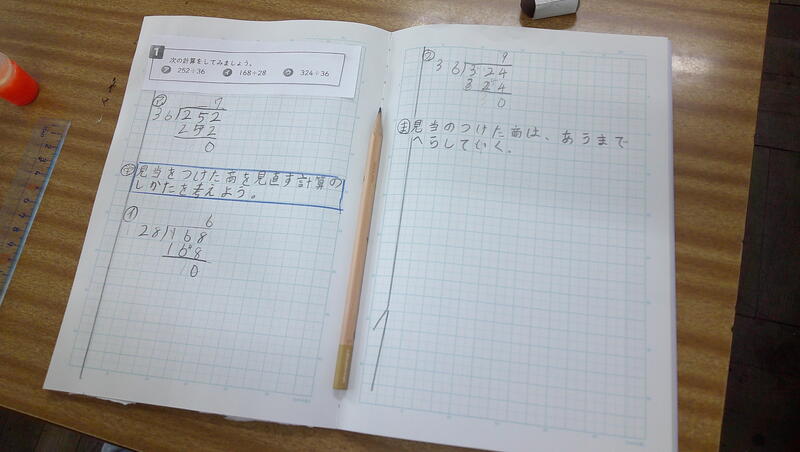 1
次の計算をしてみましょう。
ア 252÷36 イ 168÷28 ウ 324÷36
ア
7
36)252
252
0
見当をつけた商を見直す計算の
しかたを考えよう。
イ
6
28)168
168
0
ウ
9
36)324
324
0
見当のつけた商は、あうまで
へらしていく。